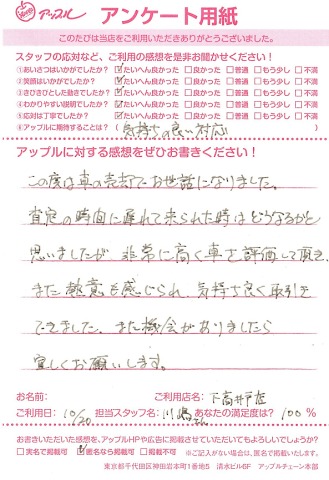 アップル アンケート用紙
このたびは当店をご利用いただきありがとうございました。
スタッフの応対など、ご利用の感想を是非お聞かせください！
①あいさつはいかがでしたか？ ☑たいへん良かった □良かった □普通 □もう少し □不満
②笑顔はいかがでしたか？ ☑たいへん良かった □良かった □普通 □もう少し □不満
③きびきびとした動きでしたか？ ☑たいへん良かった □良かった □普通 □もう少し □不満
④わかりやすい説明でしたか？ ☑たいへん良かった □良かった □普通 □もう少し □不満
⑤応対は丁寧でしたか？ ☑たいへん良かった □良かった □普通 □もう少し □不満
⑥アップルに期待することは？（気持ちの良い対応）
アップルに対する感想をぜひお書きください！
この度は車の売却でお世話になりました。
査定の時間に遅れて来られた時はどうなるかと
思いましたが、非常に高く車を評価して頂き、
また熱意も感じられ、気持ち良く取引を
できました。また機会がありましたら
宜しくお願いします。
お名前： ご利用店名：下高井戸店
ご利用日：10/20 担当スタッフ名：川嶋さん あなたの満足度は？ 100％
お書きいただいた感想を、アップルHPや広告に掲載させていただいてもよろしいでしょうか？
□実名で掲載可 ☑匿名なら掲載可 □掲載不可 ※ご記入がない場合は、匿名で掲載いたします。
東京都千代田区神田岩本町1番地5 清水ビル6F アップルチェーン本部